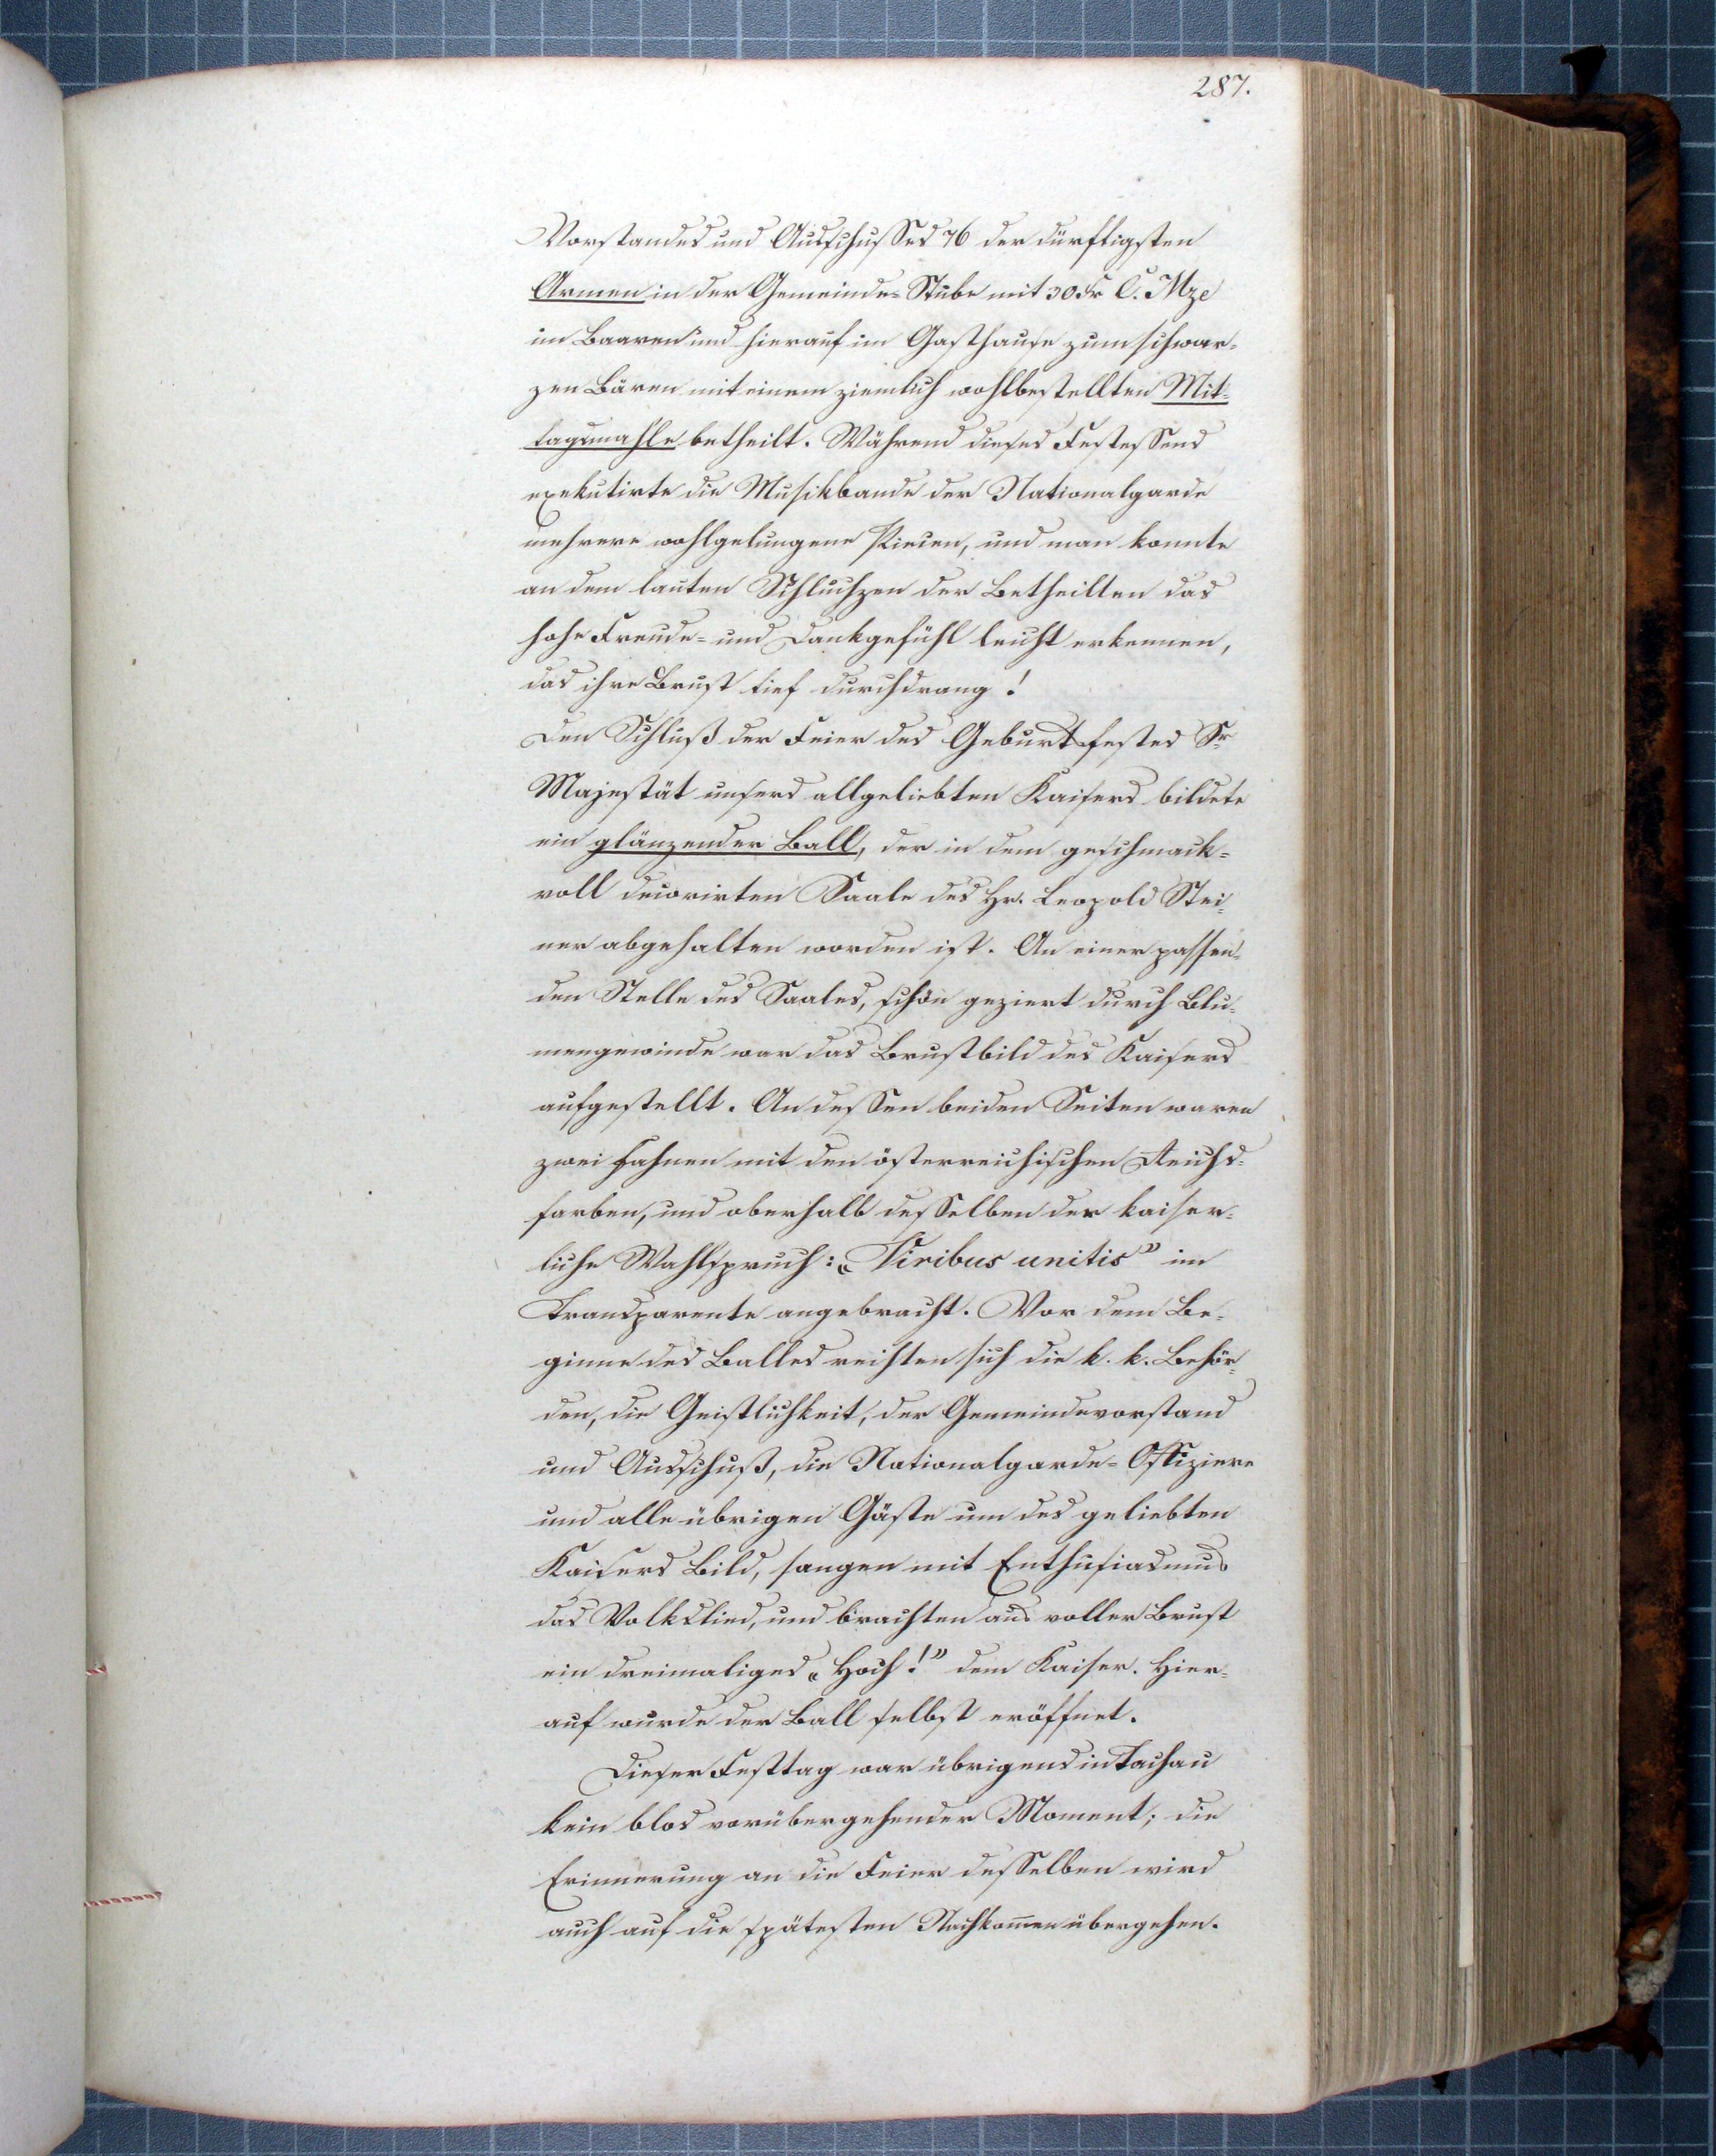 287.
Vorstandes und Ausschusses 76 der dürftigsten
Armen in der Gemeinde-Stube mit 30 Kr C. Mze
im Baaren und hierauf im Gasthause zum schwar-
zen Bären mit einem ziemlich wohlbestellten Mit-
tagsmahle betheilt. Während dieses Festessens
exekutirte die Musikbande der Nationalgarde
mehrere wohlgelungene Piecen, und man konnte
an dem lauten Schluchzen der Betheilten das
hohe Freude- und Dankgefühl leicht erkennen,
das ihre Brust tief durchdrang!
Den Schluß der Feier des Geburtsfestes Sr
Majestät unsers allgeliebten Kaisers bildete
ein glänzender Ball, der in dem geschmack-
voll decorirten Saale des Hr. Leopold Stei-
ner abgehalten worden ist. An einer passen-
den Stelle des Saales, schön geziert durch Blu-
mengewinde war das Brustbild des Kaisers
aufgestellt. An dessen beiden Seiten waren
zwei Fahnen mit den österreichischen Reichs-
farben, und oberhalb desselben der kaiser-
liche Wahlspruch: „Viribus unitis” im
Transparente angebracht. Vor dem Be-
ginne des Balles reihten sich die k. k. Behör-
den, die Geistlichkeit, der Gemeindevorstand
und Ausschuß, die Nationalgarde-Offiziere
und alle übrigen Gäste um des geliebten
Kaisers Bild, sangen mit Enthusiasmus
das Volkslied, und brachten aus voller Brust
ein dreimaliges „Hoch!” dem Kaiser. Hier-
auf wurde der Ball selbst eröffnet.
Dieser Festtag war übrigens in Tachau
kein blos vorübergehender Moment; die
Erinnerung an die Feier desselben wird
auch auf die spätesten Nachkom̅en übergehen.